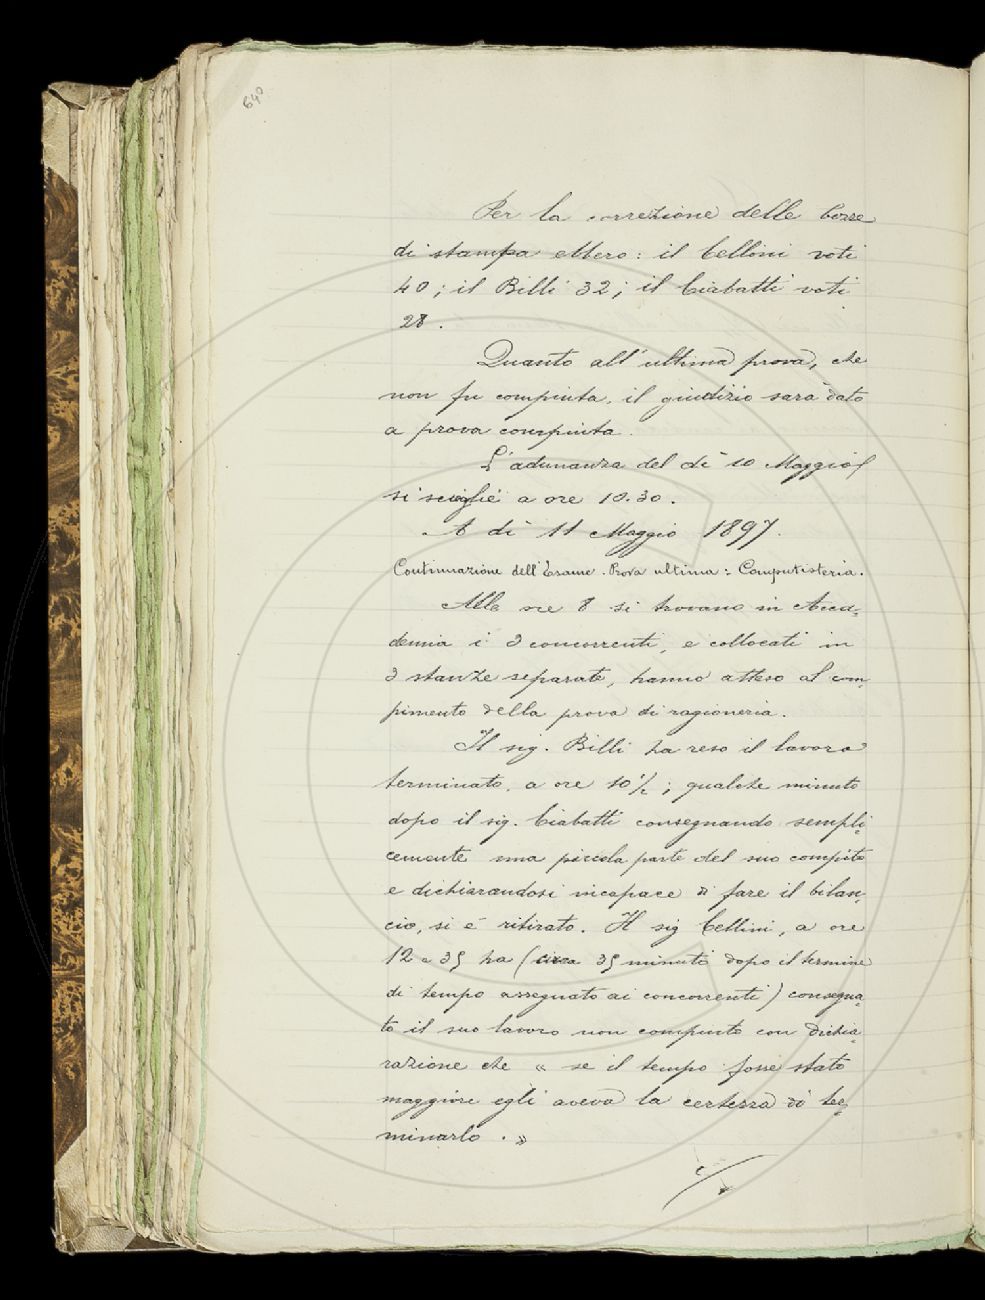 640
Per la correzione delle bozze
di stampa ebbero: il Cellini voti
40; il Billi 32; il Ciabatti voti
28.
Quanto all'ultima prova, che
non fu compiuta, il giudizio sarà dato
a prova compiuta.
L'adunanza del dì 10 Maggio
si scioglie a ore 10.30.
A dì 11 Maggio 1897.
Continuazione dell'Esame. Prova ultima: Computisteria.
Alle ore 8 si trovano in Acca-
demia i 3 concorrenti, e collocati in
3 stanze separate, hanno atteso al com-
pimento della prova di ragioneria.
Il sig. Billi ha reso il lavoro
terminato, a ore 10 1/2; qualche minuto
dopo il sig. Ciabatti consegnando sempli-
cemente una piccola parte del suo compito
e dichiarandosi incapace di fare il bilan-
cio, si è ritirato. Il sig Cellini, a ore
12 e 35 ha (circa 35 minuti dopo il termine
di tempo assegnato ai concorrenti) consegna-
to il suo lavoro non compiuto con dichia-
razione che « se il tempo fosse stato
maggiore egli aveva la certezza di ter-
minarlo. »